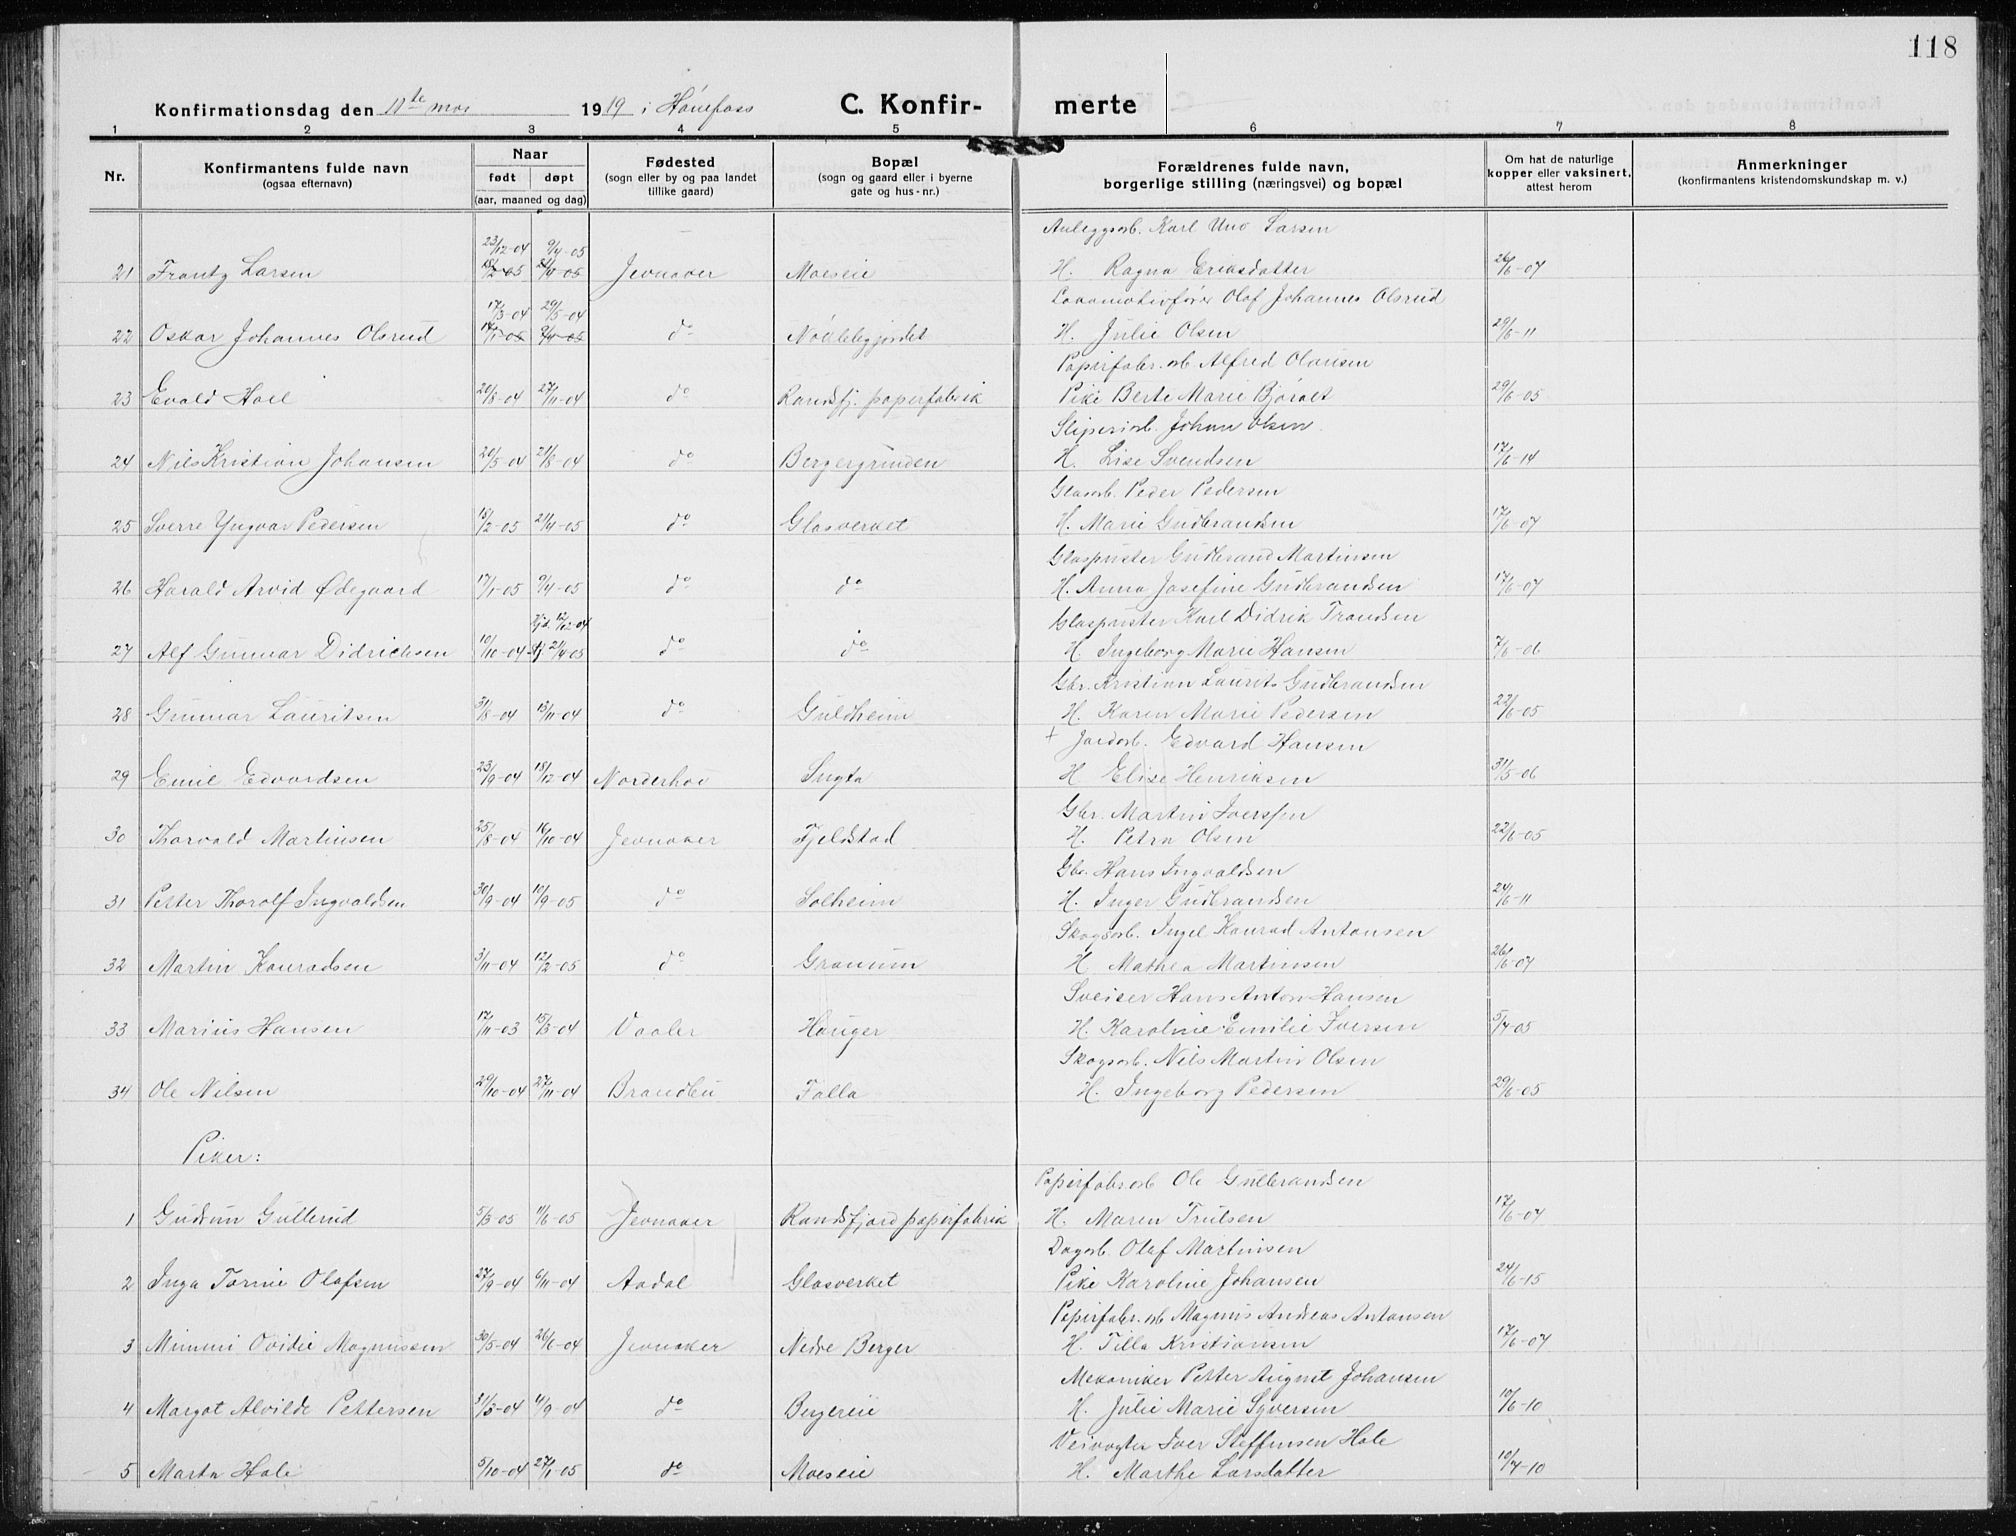 118
Konfirmationsdag den 11te mai 1919 i Hønefoss C. Konfir- merte
1 2 3 4 5 6 7 8
Nr.
Konfirmantens fulde navn
(ogsaa efternavn)
Naar
født døpt
(aar, maaned og dag)
Fødested
(sogn eller by og paa landet
tillike gaard)
Bopæl
(sogn og gaard eller i byerne
gate og hus-nr.)
Forældrenes fulde navn,
borgerlige stilling (næringsvei) og bopæl
Om hat de naturlige
kopper eller vaksinert,
attest herom
Anmerkninger
(konfirmantens kristendomskundskap m. v.)
23/12-04 9/4-05 Anleggsarb. Karl Uno Larsen
21 Frantz Larsen Jevnaker Moeseie H. Ragna Eriksdatter 26/6-07
17/3-04 29/5-04 Lokomotivfører Olaf Johannes Olsrud
22 Oskar Johannes Olsrud 14/1-05 9/4-05 do Nøklebygjordet H. Julie Olsen 29/6-11
Papirfabr.arb Alfred Olausen
23 Evald Hoel 20/8-04 27/11-04 do Randsfj. papirfabrik Pike Berte Marie Bjøralt 29/6-05
Sliperiarb. Johan Olsen
24 Nils Kristian Johansen 20/5-04 21/8-04 do Bergergrinden H. Lise Svendsen 17/6-14
Glasarb. Peder Pedersen
25 Sverre Yngvar Pedersen 15/2-05 21/4-05 do Glasverket H. Marie Gudbrandsen 17/6-07
Glaspuster Gudbrand Martinsen
26 Harald Arvid Ødegaard 17/1-05 9/4-05 do do H. Anna Josefine Gudbrandsen 17/6-07
Hjd. 12/12-04 Glaspuster Karl Didrik Trandsen
27 Alf Gunnar Didrichsen 10/10-04 21/4-05 do do H. Ingeborg Marie Hansen 7/6-06
Gbr. Kristian Laurits Gudbrandsen
28 Gunnar Lauritsen 31/8-04 13/11-04 do Guldheim H. Karen Marie Pedersen 22/6-05
+ Jordarb. Edvard Hansen
29 Emil Edvardsen 23/9-04 18/12-04 Norderhov Sugta H Elise Henriksen 31/5-06
Gbr. Martin Iverssen
30 Thorvald Martinsen 25/8-04 16/10-04 Jevnaker Fjeldstad H. Petra Olsen 22/6-05
Gbr. Hans Ingvaldsen
31 Petter Thorolf Ingvaldsen 30/9-04 10/9-05 do Solheim H. Inger Gudbrandsen 24/6-11
Skogsarb. Ingel Konrad Antonsen
32 Martin Konradsen 3/11-04 12/2-05 do Granum H Mathea Martinsen 26/6-07
Sveiser Hans Anton Hansen
33 Marius Hansen 17/11-03 15/3-04 Vaaler Hauger H. Karoline Emilie Iversen 5/7-05
Skogsarb. Nils Martin Olsen
34 Ole Nilsen 29/10-04 27/11-04 Brandbu Falla H. Ingeborg Pedersen 29/6-05
Piker:
Papirfabr.arb Ole Gulbrandsen
1 Gudrun Gullerud 5/3-05 11/6-05 Jevnaker Randsfjord papirfabrik H. Maren Trulsen 17/6-07
Dagarb. Olaf Martinsen
2 Inga Tomine Olafsen 27/9-04 6/11-04 Aadal Glasverket Pike Karoline Johansen 24/6-15
Papirfabr.arb Magnus Andreas Antonsen
3 Mimmi Ovidie Magnussen 30/5-04 26/6-04 Jevnaker Nedre Berger H. Tilla Kristiansen 17/6-07
Mekaniker Petter August Johansen
4 Margot Alvilde Pettersen 31/3-04 4/9-04 do Bergereie H. Julie Marie Syversen 10/6-10
Veivogter Iver Steffensen Hole
5 Marta Hole 5/10-04 27/1-05 do Moeseie H. Marthe Larsdatter 10/7-10